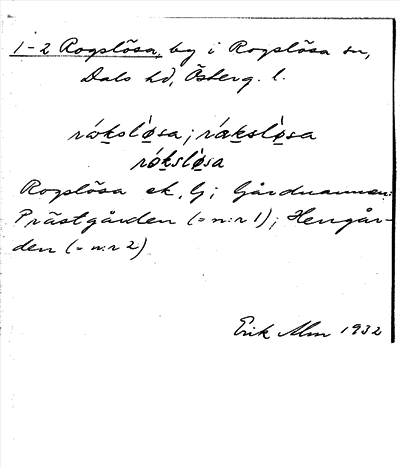 1-2 Rogslösa, by i Rogslösa sn,
Dals hd, Östberg. l.
rókslö̀sa; rákslö̀sa
rókslö̀sa
Rogslösa ek, G; Gårdnamnen:
Prästgården (= n:r 1); Herrgår-
den (= n:r 2)
Erik Alm 1932